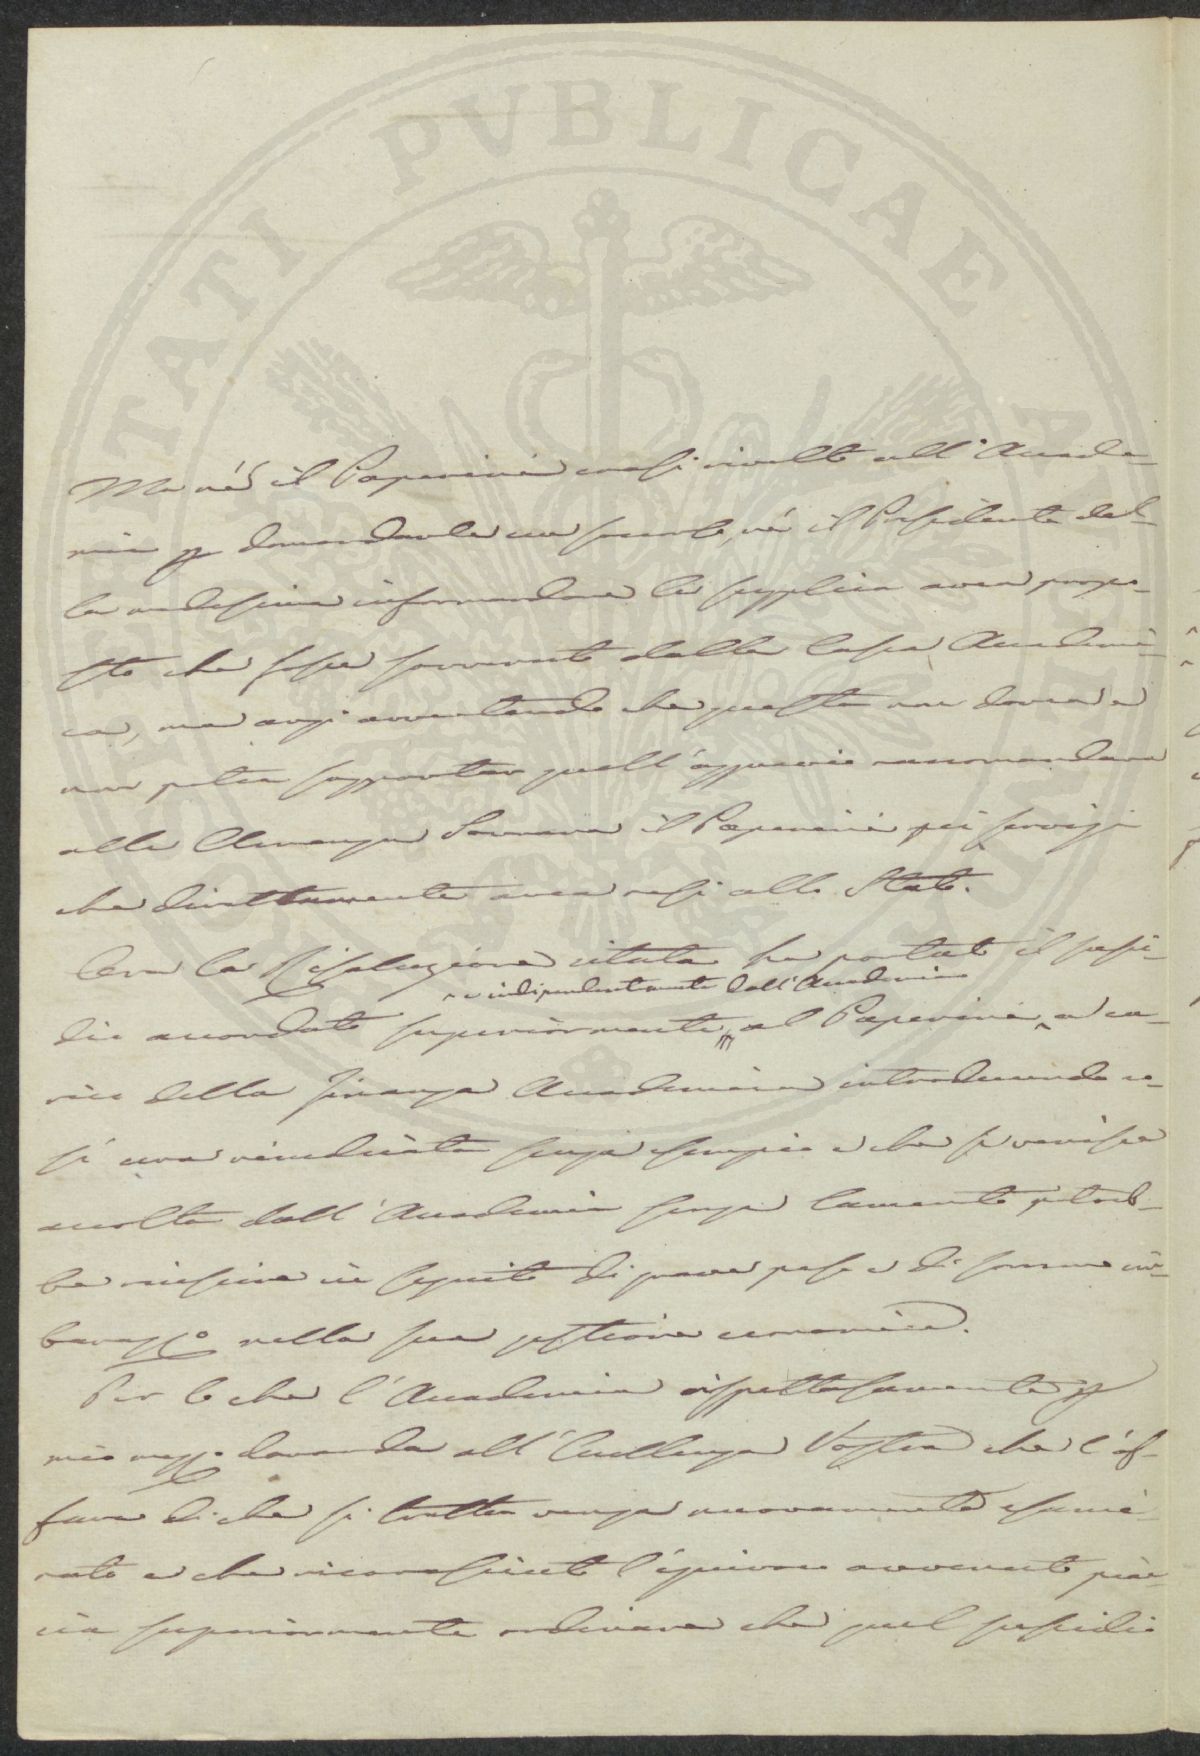 Ma nè il Paperini erasi rivolto all'Accade-
mia p domandarle un soccorso, nè il Presidente del-
la medesima informandone la supplica avea propo-
sto che fosse sovvenuto dalla Cassa Accademi-
ca, ma anzi avvertendo che questa non dovea e
non potea sopportar quell'aggravio raccomandava
alla Clemenza Sovrana il Paperini pei servigi
che direttamente avea resi allo Stato.
Ora la Risoluzione citata ha portato il sussi-
e indipendentemente dall'Accademia
dio accordato superiormente al Paperini a ca-
rico della Finanza Accademica introducendo co-
sì una veduta senza esempio e che se venisse
accolta dall'Accademia senza lamento potreb-
be riuscire in seguito di grave peso e di sommo im-
barazzo nella sua gestione economica.
Per lo che l'Accademia rispettosamente p
mio mezzo domanda all'Eccellenza Vostra che l'af-
fare di che si tratta venga nuovamente esami-
nato e che riconosciuto l'equivoco avvenuto piac-
cia superiormente ordinare che quel sussidio
SOCIETATI PVBLICAE